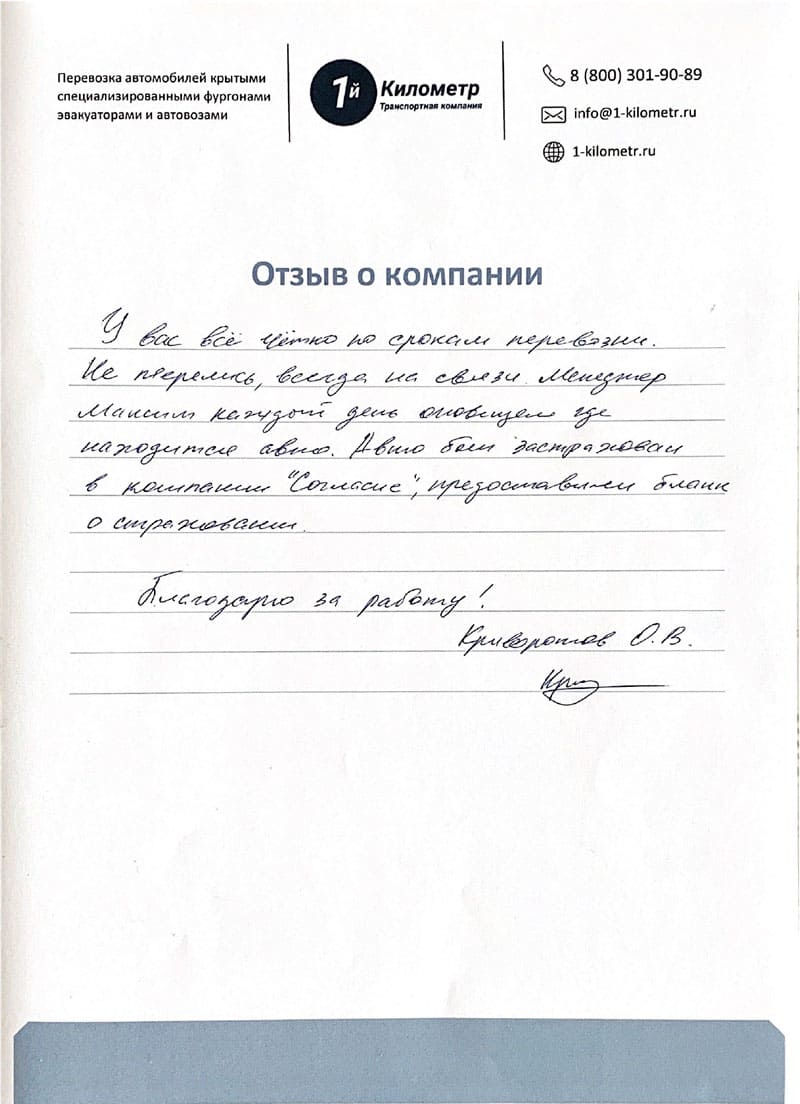 Перевозка автомобилей крытыми
специализированными фургонами
эвакуаторами и автовозами
1й Километр
Транспортная компания
8 (800) 301-90-89
info@1-kilometr.ru
1-kilometr.ru
Отзыв о компании
У вас всё чётко по срокам перевозки.
Не терялись, всегда на связи. Менеджер
Максим каждый день оповещал где
находится авто. Авто был застрахован
в компании "Согласие", предоставили бланк
о страховании.
Благодарю за работу!
Криворотов О.В.